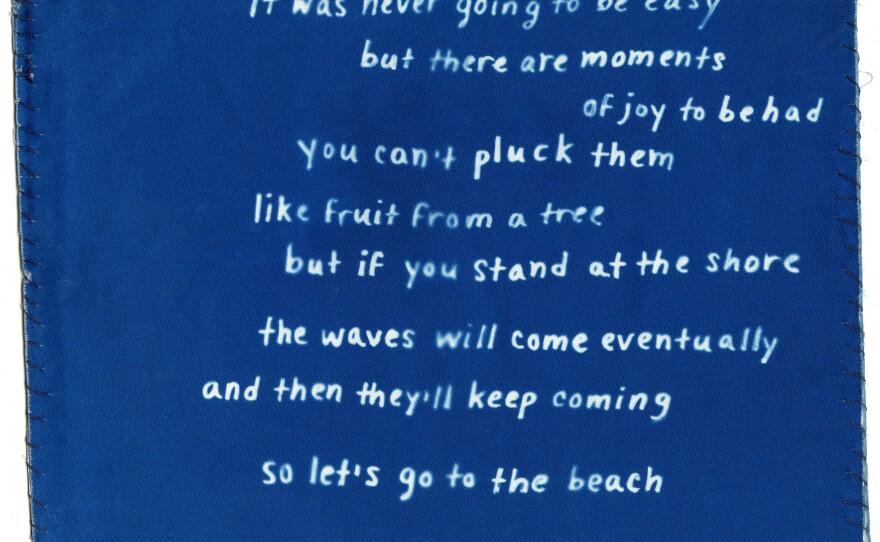 it was never going to be easy
but there are moments
of joy to be had
you can't pluck them
like fruit from a tree
but if you stand at the shore
the waves will come eventually
and then they'll keep coming
so let's go to the beach